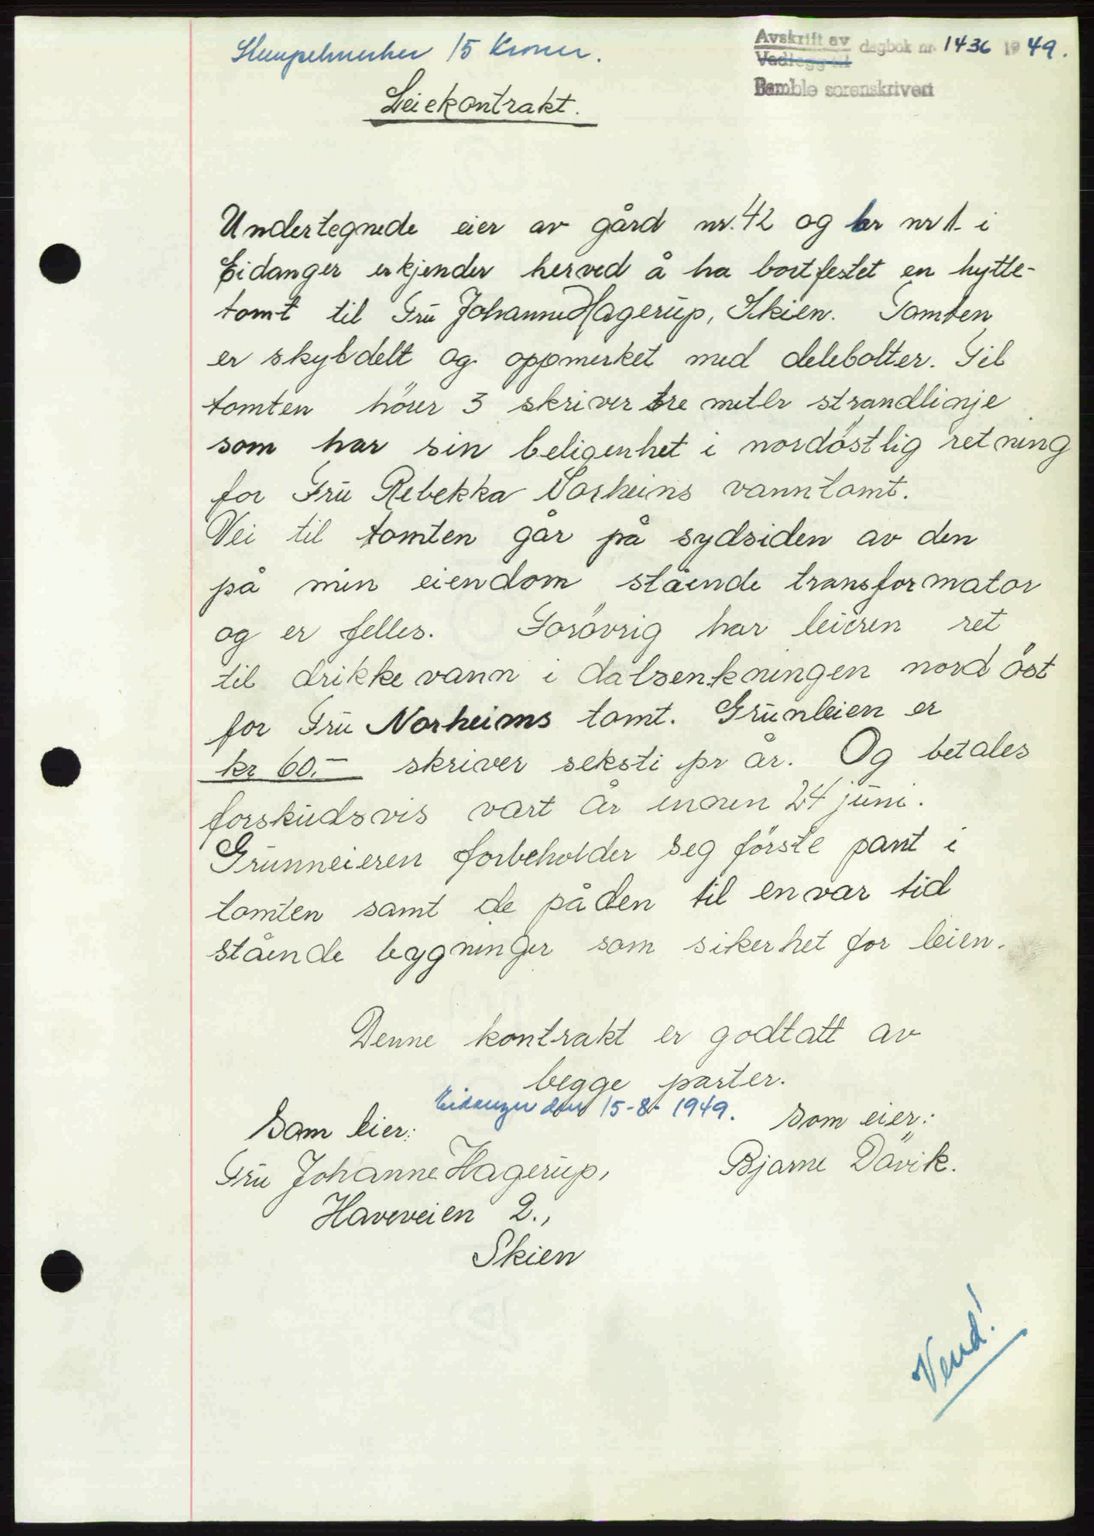 Stempelmerker 15 Kroner.
Avskrift av
Vedlegg til
dagbok nr 1436 1949.
Bamble sorenskriveri
Leiekontrakt.
Undertegnede eier av gård nr. 42 og br nr 1. i
Eidanger erkjender herved å ha bortfestet en hytte-
tomt til Fru Johanne Hagerup, Skien. Tomten
er skyldelt og oppmerket med delebolter. Til
tomten hører 3 skriver tre meter strandlinje
som har sin beligenhet i nordöstlig retning
for Fru Rebekka Norheims vanntomt.
Vei til tomten går på sydsiden av den
på min eiendom stående transformator
og er felles. Forövrig har leieren ret
til drikkevann i dalsenkningen nord öst
for Fru Norheims tomt. Grunleien er
kr 60.- skriver seksti pr år. Og betales
forskudsvis vært år innen 24 juni.
Grunneieren forbeholder seg förste pant i
tomten samt de på den til en var tid
stående bygninger som sikerhet for leien.
Denne kontrakt er godtatt av
begge parter.
Eidanger den 15-8-1949.
Som leier:
Som eier:
Fru Johanne Hagerup,
Bjarne Dövik.
Haveveien 2.,
Skien
Vend!